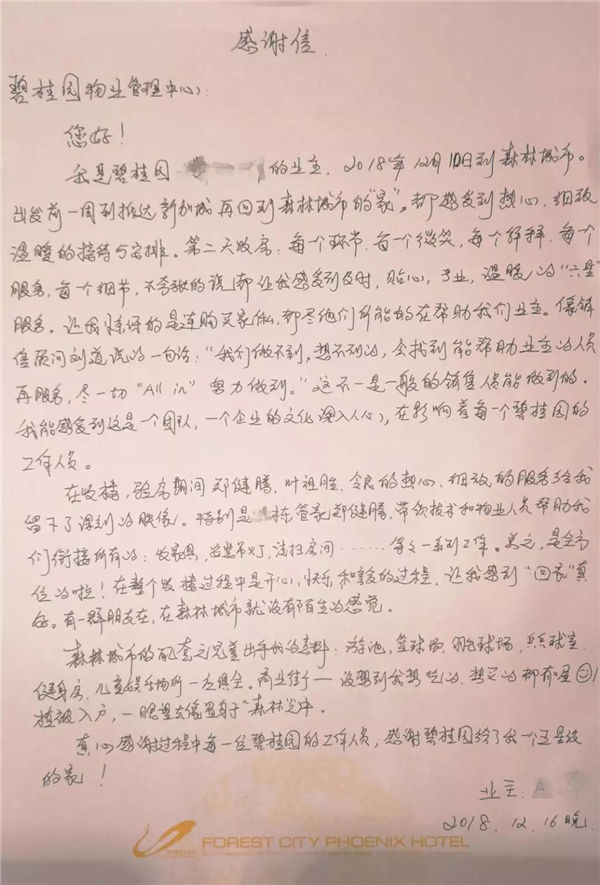 感谢信.
碧桂园物业管理中心:
您好!
我是碧桂园 的业主, 2018年12月10日到森林城市。
出发前一周到抵达新加坡再回到森林城市的"家"。都感受到热心、细致
温暖的接待与安排。第二天收房, 每个环节, 每一个微笑, 每个解释, 每个
服务, 每个细节, 不夸张的说, 都让我感受到及时, 贴心, 专业, 温暖的"六星"
服务。让我惊讶的是连购买家俬, 都尽他们所能的在帮助我们业主。
"我们做不到, 想不到的, 会找到能帮助业主的人员
再服务, 尽一切"All in"努力做到。"这不是一般的销售人员能做到的.
我能感受到这是一个团队, 一个企业的文化深入人心, 在影响着每个碧桂园的
工作人员。
在收楼, 验房期间郑健腾, 叶祖胜, 的热心, 细致的服务给我
留下了深刻的映像。特别是 栋管家郑健腾, 带领技术和物业人员帮助我
们衔接所有的: 收家俱, 安装吊灯, 清扫房间……等等一系列工作。总之, 是全方
位的啦! 在整个收楼过程中是开心, 快乐和享受的过程, 让我感到"回家"真
好。有一群朋友在, 在森林城市就没有陌生的感觉。
森林城市的配套之完善出乎我的意料: 游泳池, 篮球场, 羽毛球场, 乒乓球室
健身房, 儿童娱乐场所一应俱全。商业街——没想到我想吃的, 想买的都有喔☺!
植被入户, 一眼望去像置身于"森林之中.
真心感谢过程中每一位碧桂园的工作人员, 感谢碧桂园给了我一个五星级
的家!
业主: A
2018. 12. 16晚.
FOREST CITY PHOENIX HOTEL